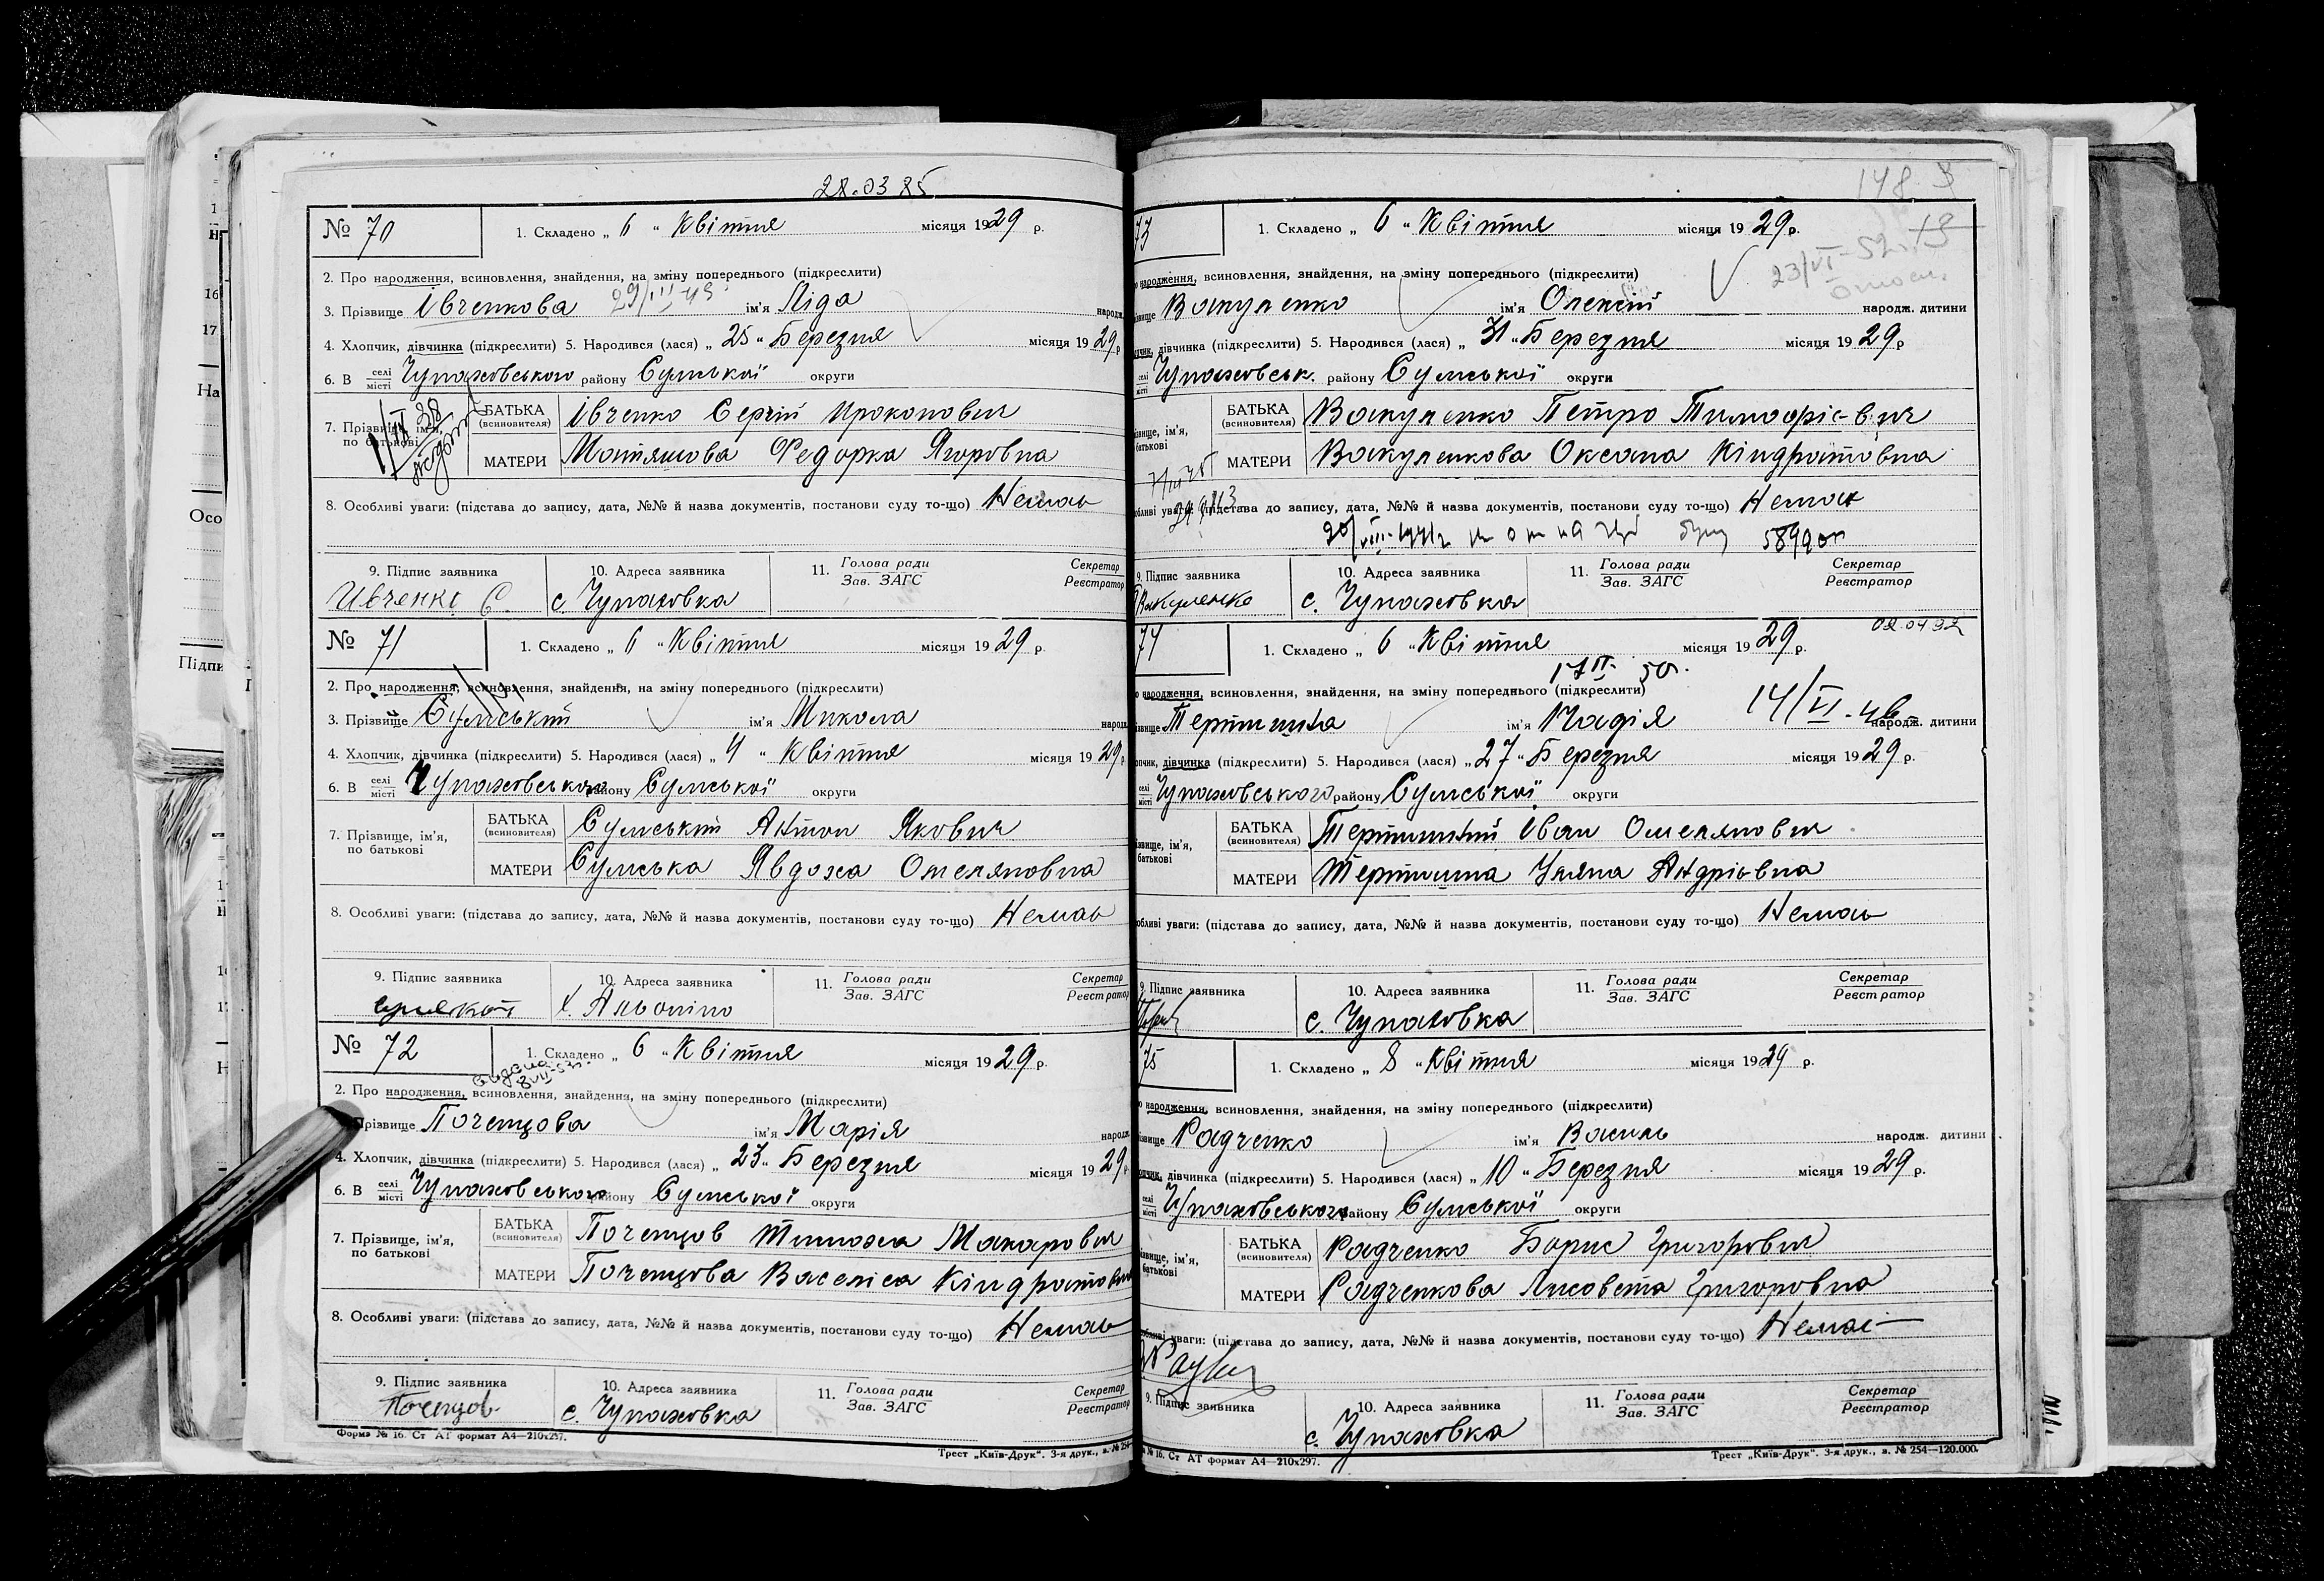 28.03 85
№ 70
1. Складено „ 6 “ Квітня місяця 1929 р.
2. Про народження, всиновлення, знайдення, на зміну попереднього (підкреслити)
3. Прізвище Івченкова 29/III 43 ім'я Ліда народж.
4. Хлопчик, дівчинка (підкреслити) 5. Народився (лася) „ 25 “ Березня місяця 1929 р
6. В селі місті Чупахсвського району Сумської округи
7. Прізвище, ім'я, по батькові
БАТЬКА (всиновителя) Івченко Сергій Прокопович
МАТЕРИ Матяшова Федорка Ягоровна
8. Особливі уваги: (підстава до запису, дата, №№ й назва документів, постанови суду то-що) Немає
9. Підпис заявника 10. Адреса заявника 11. Голова ради Зав. ЗАГС Секретар Реєстратор
Ивченко С. с. Чупаховка
№ 71
1. Складено „ 6 “ Квітня місяця 1929 р.
2. Про народження, всиновлення, знайдення, на зміну попереднього (підкреслити)
3. Прізвище Сумський ім'я Микола народж
4. Хлопчик, дівчинка (підкреслити) 5. Народився (лася) „ 4 “ Квітня місяця 1929 р.
6. В селі місті Чупаховського району Сумської округи
7. Прізвище, ім'я, по батькові
БАТЬКА (всиновителя) Сумський Антон Якович
МАТЕРИ Сумська Явдоха Омеляновна
8. Особливі уваги: (підстава до запису, дата, №№ й назва документів, постанови суду то-що) Немає
9. Підпис заявника 10. Адреса заявника 11. Голова ради Зав. ЗАГС Секретар Реєстратор
№ 72
1. Складено „ 6 “ Квітня місяця 1929 р.
2. Про народження, всиновлення, знайдення, на зміну попереднього (підкреслити)
Прізвище Почепцова ім'я Марія народж.
4. Хлопчик, дівчинка (підкреслити) 5. Народився (лася) „ 23 “ Березня місяця 1929 р
6. В селі місті Чупаховського району Сумської округи
7. Прізвище, ім'я, по батькові
БАТЬКА (всиновителя) Почепцов Тимоха Макарович
МАТЕРИ Почепцова Васеліса Кіндратовна
8. Особливі уваги: (підстава до запису, дата, №№ й назва документів, постанови суду то-що) Немає
9. Підпис заявника 10. Адреса заявника 11. Голова ради Зав. ЗАГС Секретар Реєстратор
Почепцов с. Чупаховка
Форма № 16. Ст АТ формат А4—210х297.
Трест „Київ-Друк“. 3-я друк., в. № 254
73
1. Складено „ 6 “ Квітня місяця 1929 р.
народження, всиновлення, знайдення, на зміну попереднього (підкреслити)
23/VI-52
Вакуленко ім'я Олексій народж. дитини
дівчинка (підкреслити) 5. Народився (лася) „ 31 “ Березня місяця 1929 р
селі місті Чупаховськ. району Сумської округи
ім'я, батькові
БАТЬКА (всиновителя) Вакуленко Петро Тимофієвич
МАТЕРИ Вакуленкова Оксана Кіндратовна
уваги: (підстава до запису, дата, №№ й назва документів, постанови суду то-що) Немає
9. Підпис заявника 10. Адреса заявника 11. Голова ради Зав. ЗАГС Секретар Реєстратор
Вакуленко с. Чупаховка
74
1. Складено „ 6 “ Квітня місяця 1929 р.
02.04 92
17 VI 50
народження, всиновлення, знайдення, на зміну попереднього (підкреслити)
14/VI-46
Тертишна ім'я Надія народж. дитини
дівчинка (підкреслити) 5. Народився (лася) „ 27 “ Березня місяця 1929 р.
селі місті Чупаховського району Сумської округи
ім'я, батькові
БАТЬКА (всиновителя) Тертишний Іван Омелянович
МАТЕРИ Тертишна Уляна Андрієвна
уваги: (підстава до запису, дата, №№ й назва документів, постанови суду то-що) Немає
9. Підпис заявника 10. Адреса заявника 11. Голова ради Зав. ЗАГС Секретар Реєстратор
с. Чупаховка
75
1. Складено „ 8 “ Квітня місяця 1929 р.
народження, всиновлення, знайдення, на зміну попереднього (підкреслити)
Радченко ім'я Василь народж. дитини
дівчинка (підкреслити) 5. Народився (лася) „ 10 “ Березня місяця 1929 р.
селі місті Чупаховського району Сумської округи
ім'я, батькові
БАТЬКА (всиновителя) Радченко Борис Григорович
МАТЕРИ Радченкова Лисовета Григоровна
уваги: (підстава до запису, дата, №№ й назва документів, постанови суду то-що) Немає
9. Підпис заявника 10. Адреса заявника 11. Голова ради Зав. ЗАГС Секретар Реєстратор
с. Чупаховка
№ 16. Ст АТ формат А4—210х297.
Трест „Київ-Друк“. 3-я друк., в. № 254—120.000.